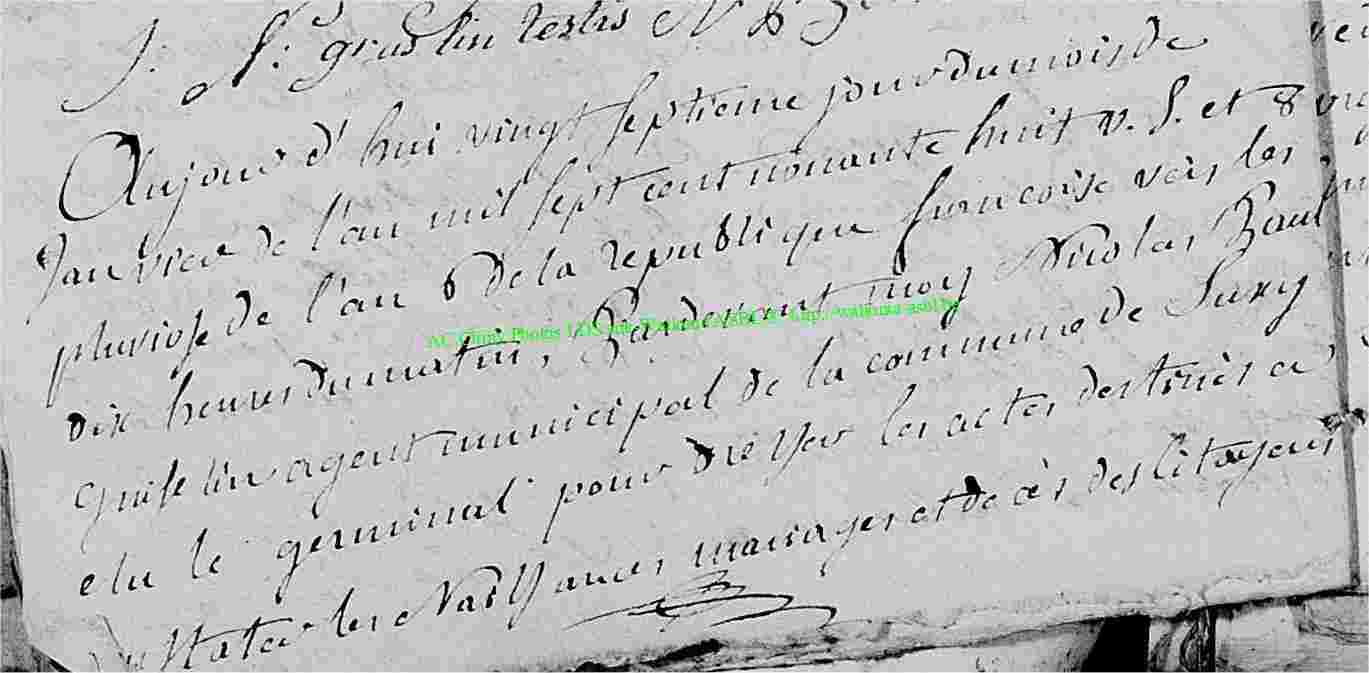 J. N. graslin testis N B
Aujourd'hui vingt septieme jour du mois de
Janvier de l'an mil sept cent nonante huit v. s. et 8
pluviose de l'an 6 de la republique francoise vers les
dix heures du matin, Pardevant moy Nicolas Paul
guislin agent municipal de la commune de Suxy
elu le germinal pour dresser les actes destinès a
stater les Naissances mariages et decès des Citoyens